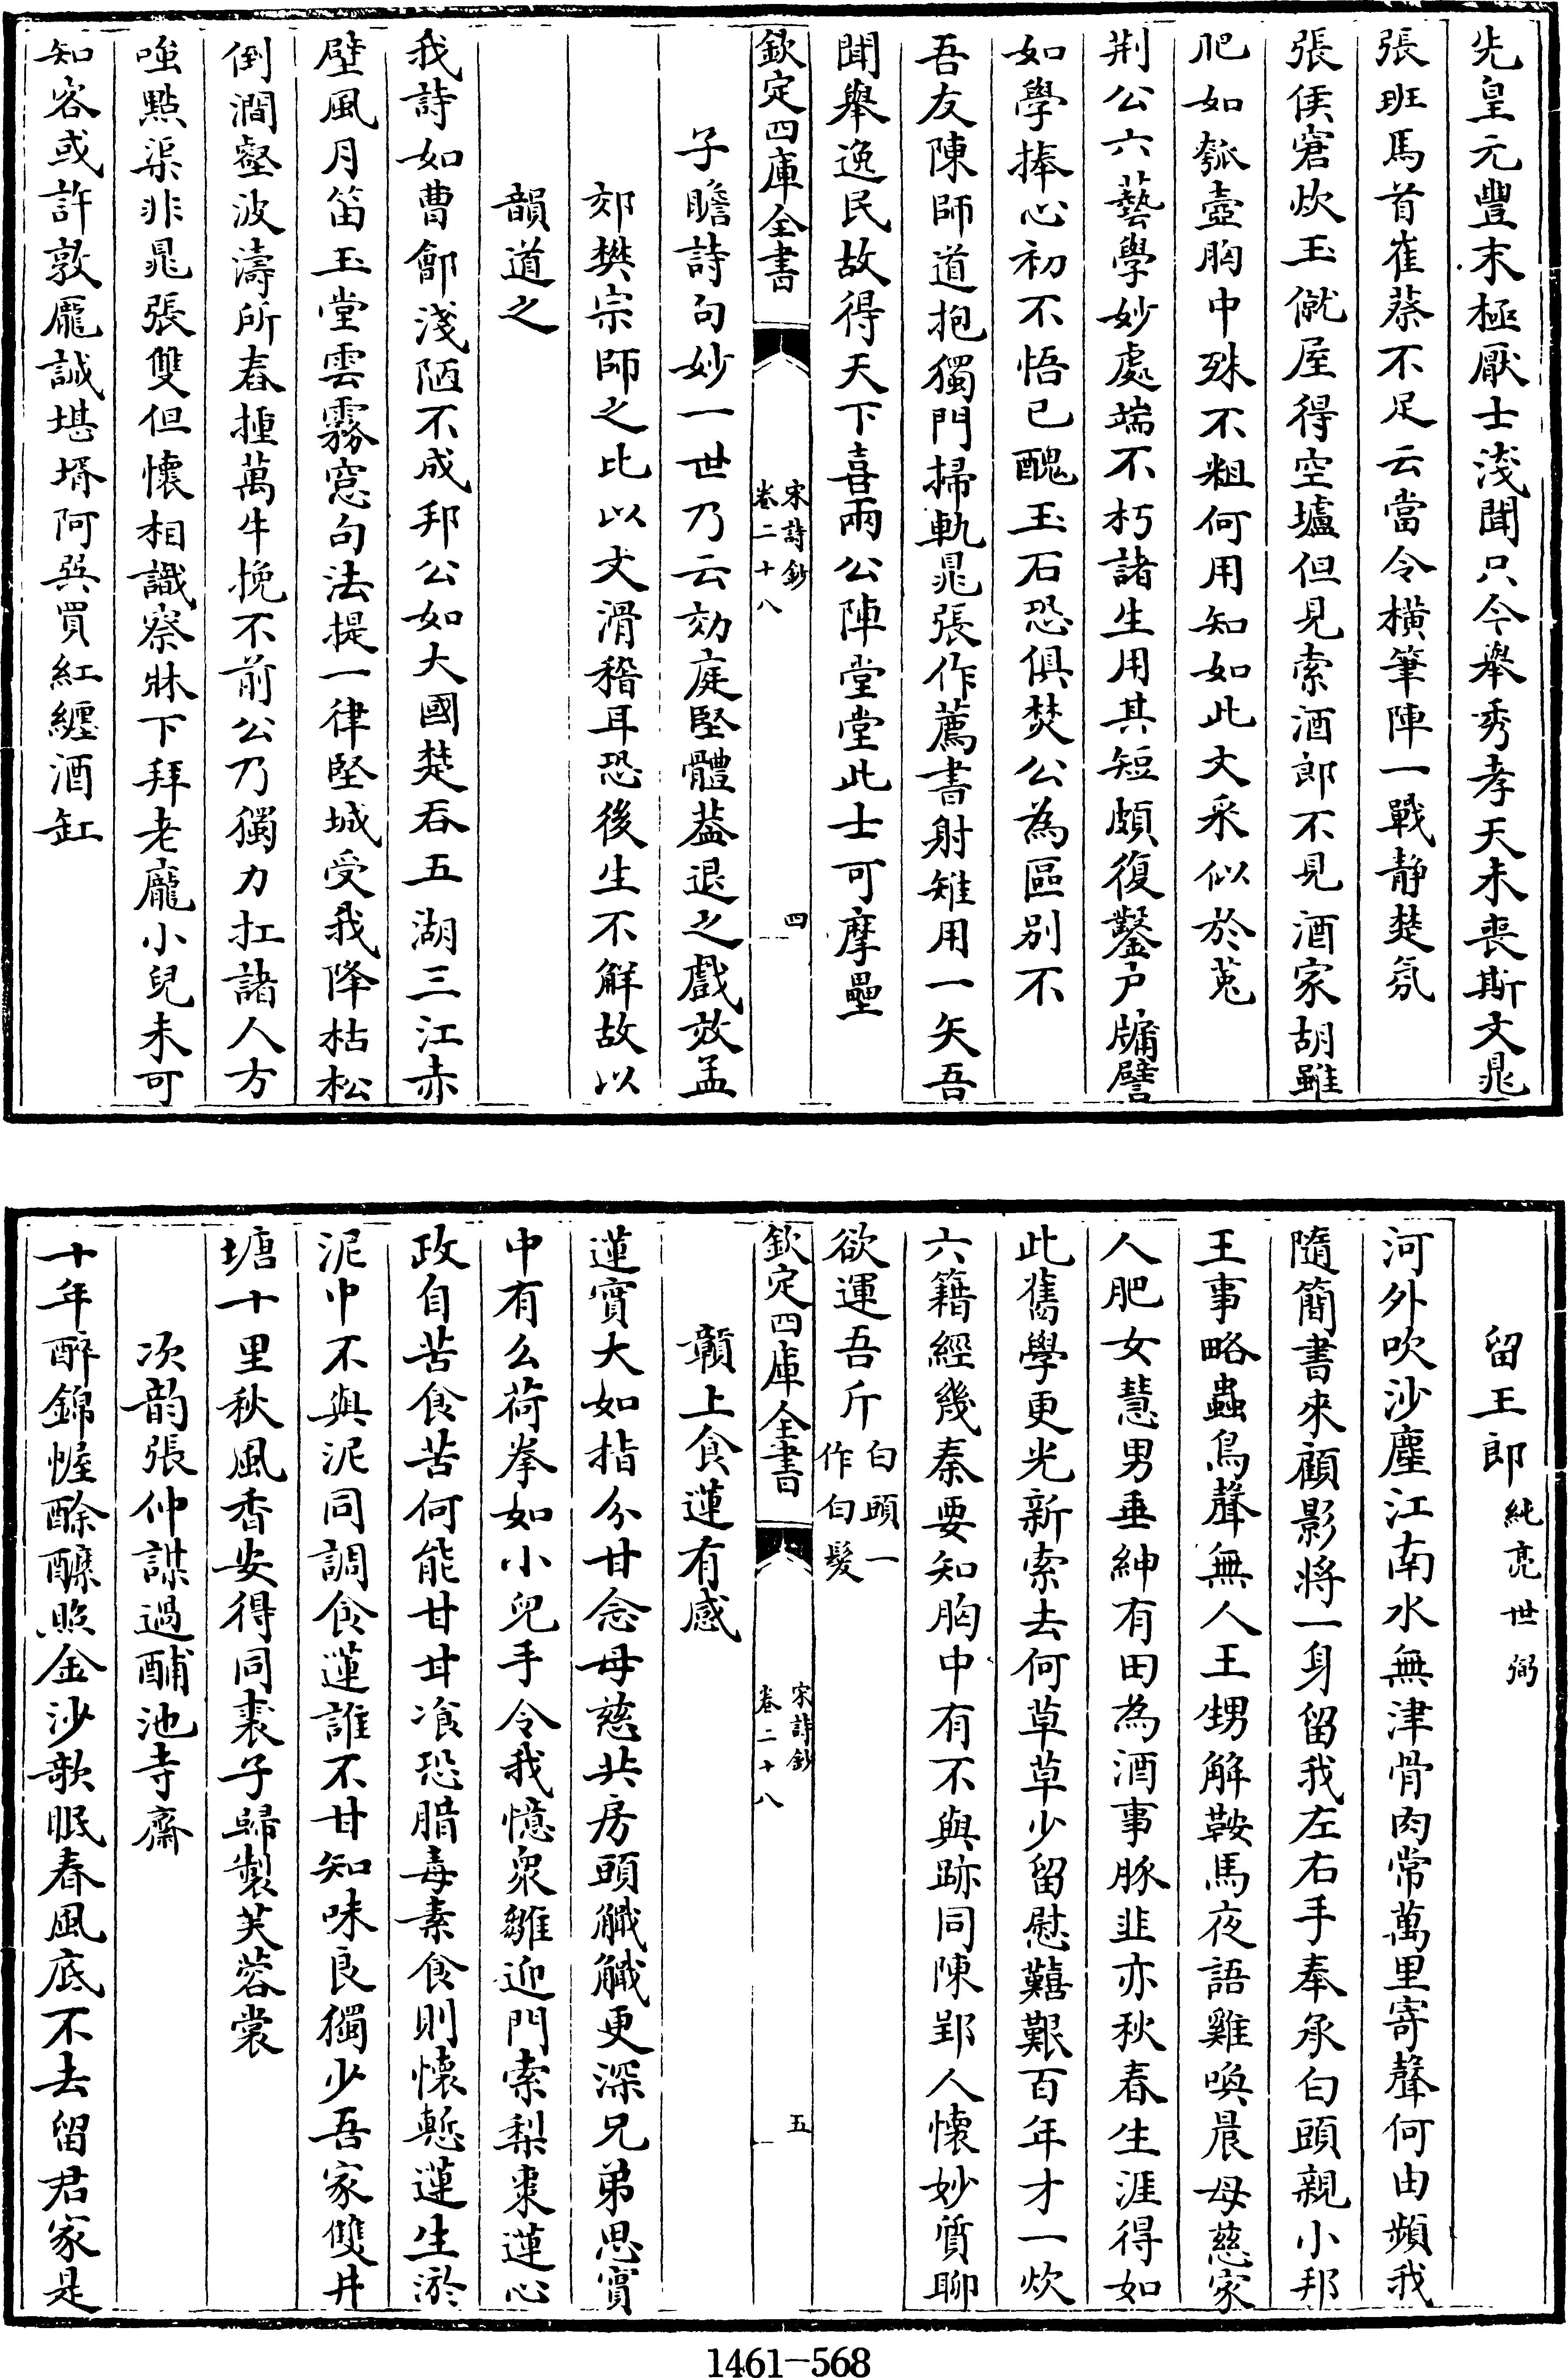 先皇元豐末極厭士淺聞只今舉秀孝天未喪斯文晁
張班馬首崔蔡不足云當令橫筆陣一戰静楚氛
張侯窘炊玉僦屋得空壚但見索酒郎不見酒家胡雖
肥如瓠壺胸中殊不粗何用知如此文采似於菟
荆公六藝學妙處端不朽諸生用其短頗復鑿户牖譬
如學捧心初不悟已醜玉石恐俱焚公為區别不
吾友陳師道抱獨門掃軌晁張作薦書射雉用一矢吾
聞舉逸民故得天下喜兩公陣堂堂此士可摩壘
欽定四庫全書
宋詩鈔
卷二十八
四
子瞻詩句妙一世乃云効庭堅體葢退之戲效孟
郊樊宗師之比以文滑稽耳恐後生不解故以
韻道之
我詩如曹鄶淺陋不成邦公如大國楚吞五湖三江赤
壁風月笛玉堂雲霧窓句法提一律堅城受我降枯松
倒澗壑波濤所舂撞萬牛挽不前公乃獨力扛諸人方
嗤點渠非晁張雙但懷相識察牀下拜老龐小兒未可
知客或許敦厖誠堪壻阿巽買紅纏酒缸
留王郎純亮世弼
河外吹沙塵江南水無津骨肉常萬里寄聲何由頻我
隨簡書來顧影將一身留我左右手奉承白頭親小邦
王事略蟲鳥聲無人王甥解鞍馬夜語雞喚晨母慈家
人肥女慧男垂紳有田為酒事豚韭亦秋春生涯得如
此舊學更光新索去何草草少留慰囏艱百年才一炊
六籍經幾秦要知胸中有不與跡同陳郢人懷妙質聊
欲運吾斤白頭一
作白髮
欽定四庫全書
宋詩鈔
卷二十八
五
贑上食蓮有感
蓮實大如指分甘念母慈共房頭艥艥更深兄弟思實
中有么荷拳如小兒手令我憶衆雛迎門索梨棗蓮心
政自苦食苦何能甘甘飡恐腊毒素食則懷慙蓮生淤
泥中不與泥同調食蓮誰不甘知味良獨少吾家雙井
塘十里秋風香安得同袠子歸製芙蓉裳
次韵張仲謀過酺池寺齋
十年醉錦幄酴醾照金沙欹眠春風底不去留君家是
1461—568